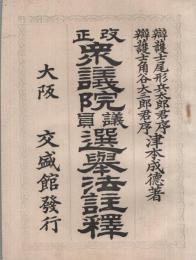 辯護士尾形兵太郎君序
辯護士角谷大三郎君序
津本成德著
改正衆議院議員選擧法註釋
大阪 交盛館發行